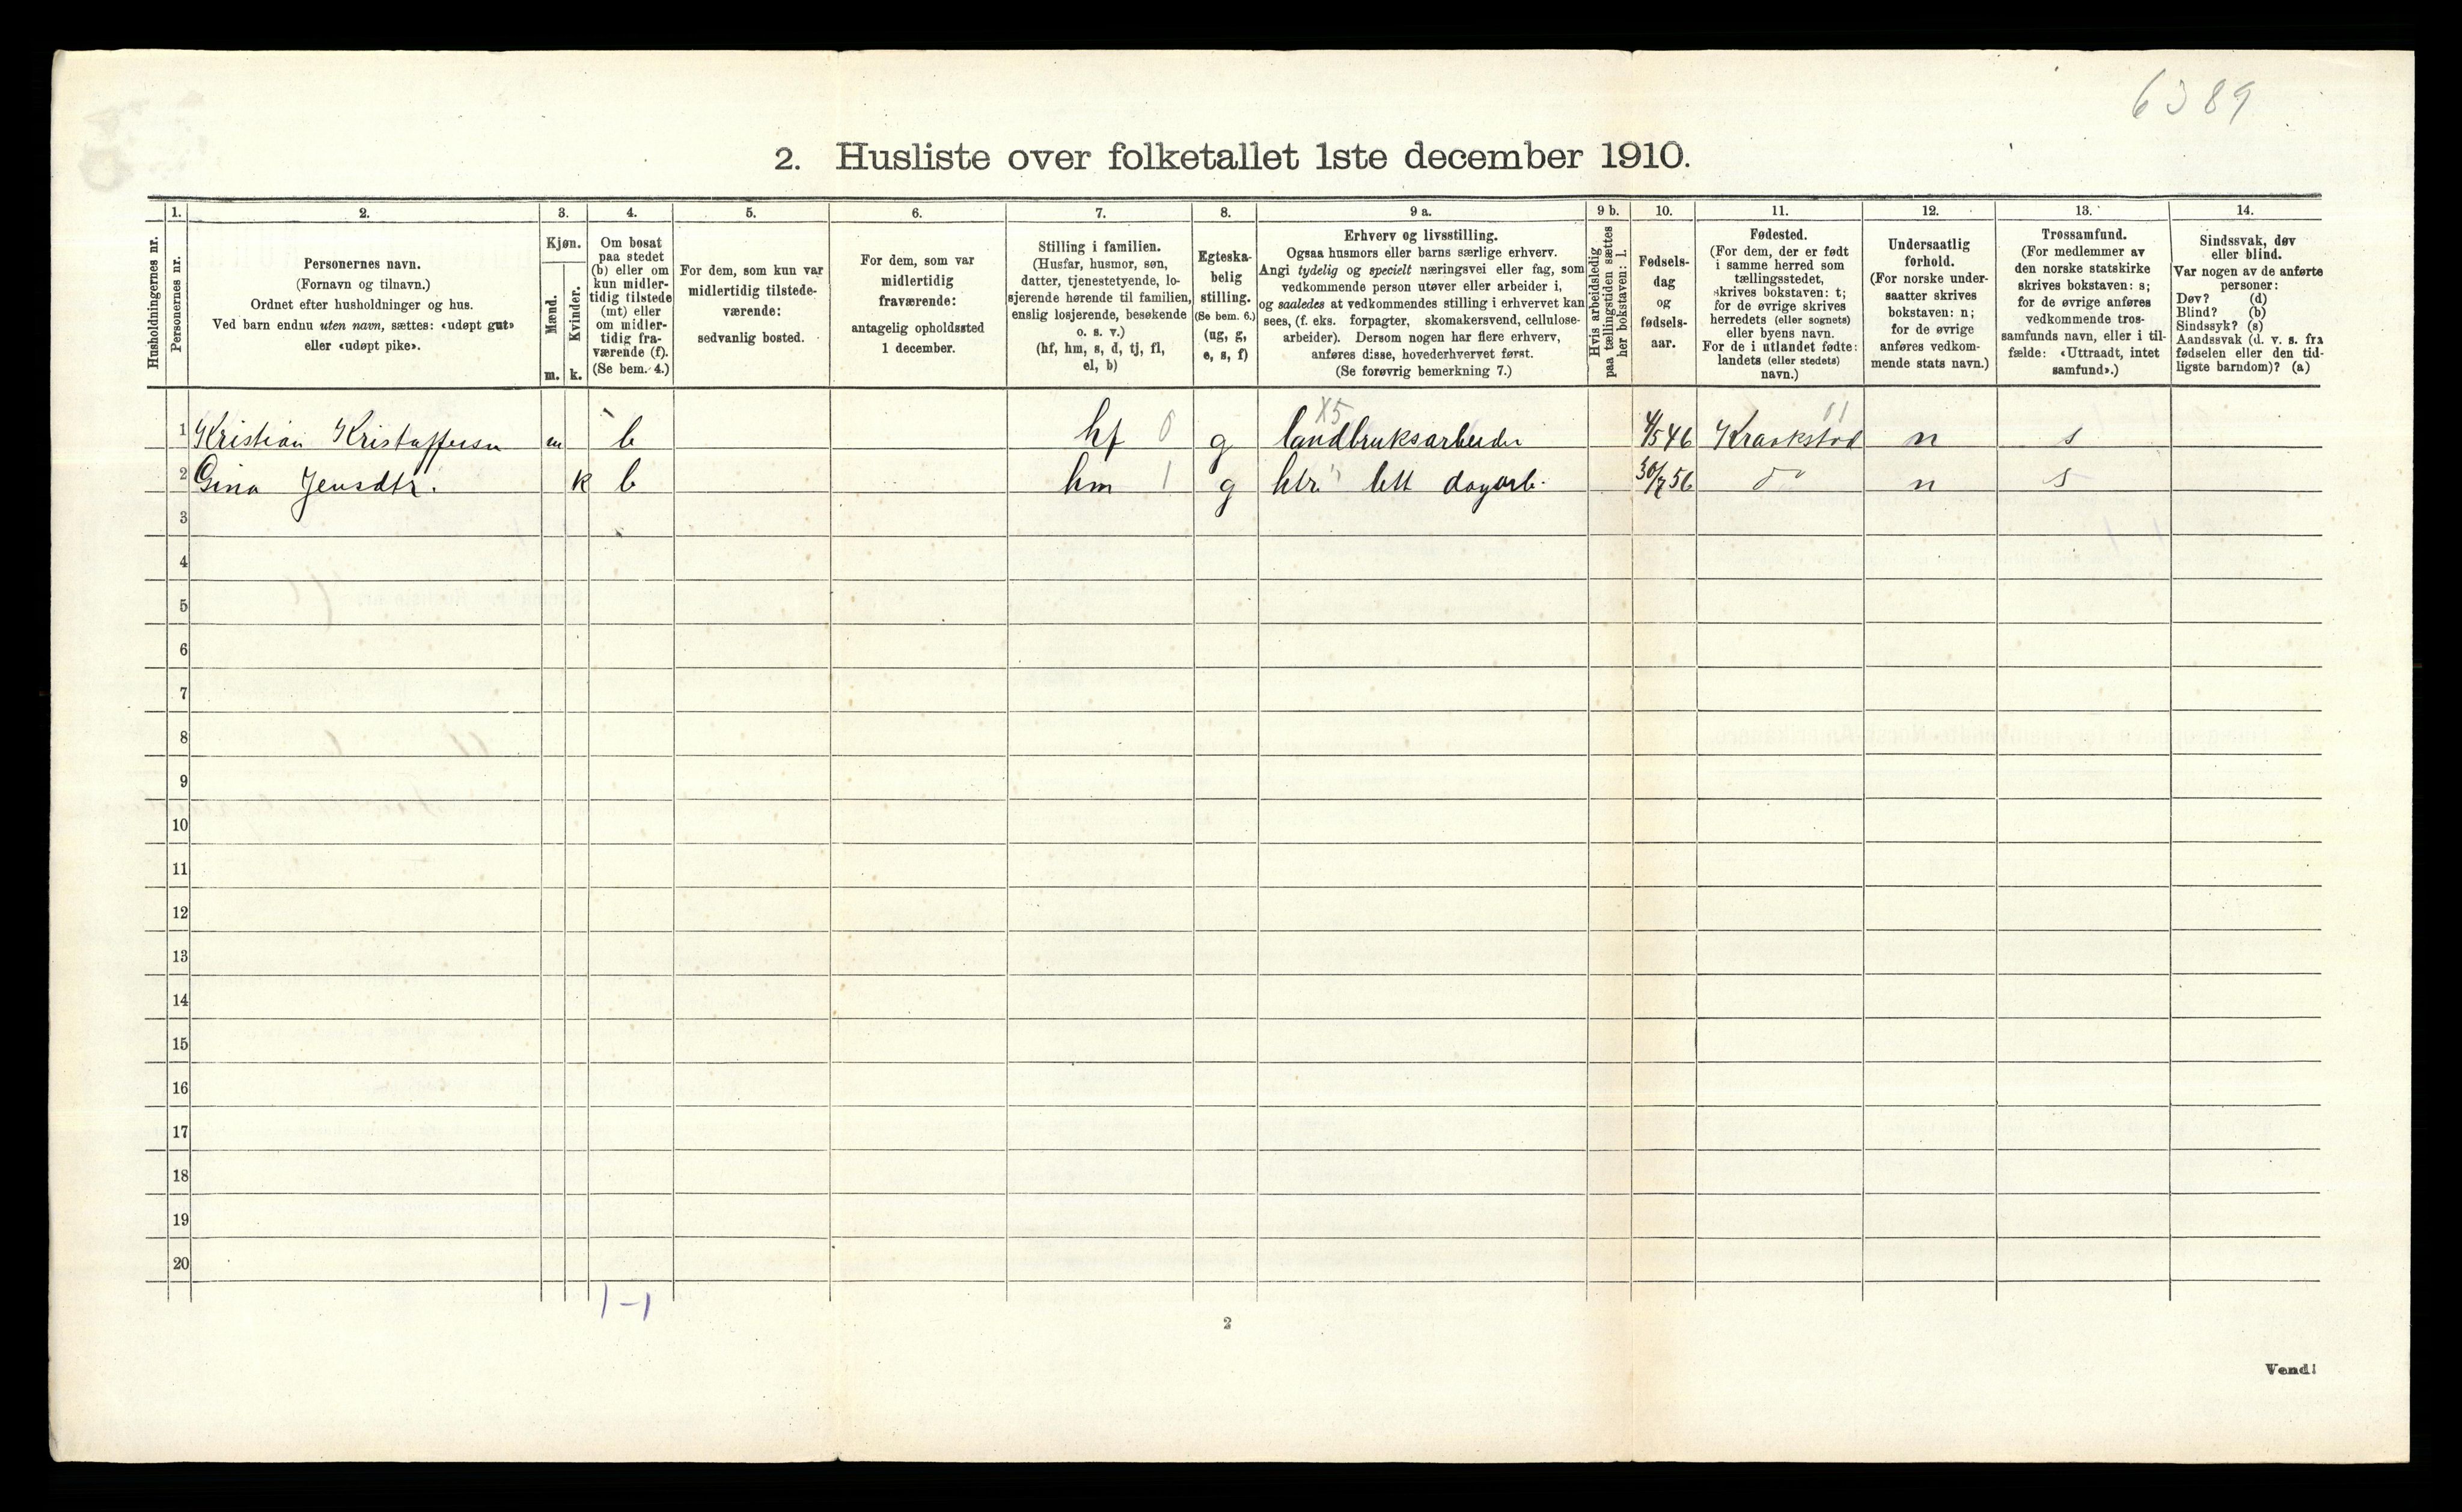 6389
2. Husliste over folketallet 1ste december 1910.
Husholdningernes nr.
1.
Personernes nr.
2.
Personernes navn.
(Fornavn og tilnavn.)
Ordnet efter husholdninger og hus.
Ved barn endnu uten navn, sættes: «udøpt gut»
eller «udøpt pike».
3.
Kjøn.
Mænd.
m.
Kvinder.
k.
4.
Om bosat
paa stedet
(b) eller om
kun midler-
tidig tilstede
(mt) eller
om midler-
tidig fra-
værende (f).
(Se bem. 4.)
5.
For dem, som kun var
midlertidig tilstede-
værende:
sedvanlig bosted.
6.
For dem, som var
midlertidig
fraværende:
antagelig opholdssted
1 december.
7.
Stilling i familien.
(Husfar, husmor, søn,
datter, tjenestetyende, lo-
sjerende hørende til familien,
enslig losjerende, besøkende
o. s. v.)
(hf, hm, s, d, tj, fl,
el, b)
8.
Egteska-
belig
stilling.
(Se bem. 6.)
(ug, g,
e, s, f)
9 a.
Erhverv og livsstilling.
Ogsaa husmors eller barns særlige erhverv.
Angi tydelig og specielt næringsvei eller fag, som
vedkommende person utøver eller arbeider i,
og saaledes at vedkommendes stilling i erhvervet kan
sees, (f. eks. forpagter, skomakersvend, cellulose-
arbeider). Dersom nogen har flere erhverv,
anføres disse, hovederhvervet først.
(Se forøvrig bemerkning 7.)
9 b.
Hvis arbeidsledig
paa tællingstiden sættes
her bokstaven: l.
10.
Fødsels-
dag
og
fødsels-
aar.
11.
Fødested.
(For dem, der er født
i samme herred som
tællingsstedet,
skrives bokstaven: t;
for de øvrige skrives
herredets (eller sognets)
eller byens navn.
For de i utlandet fødte:
landets (eller stedets)
navn.)
12.
Undersaatlig
forhold.
(For norske under-
saatter skrives
bokstaven: n;
for de øvrige
anføres vedkom-
mende stats navn.)
13.
Trossamfund.
(For medlemmer av
den norske statskirke
skrives bokstaven: s;
for de øvrige anføres
vedkommende tros-
samfunds navn, eller i til-
fælde: «Uttraadt, intet
samfund».)
14.
Sindssvak, døv
eller blind.
Var nogen av de anførte
personer:
Døv? (d)
Blind? (b)
Sindssyk? (s)
Aandssvak (d. v. s. fra
fødselen eller den tid-
ligste barndom)? (a)
X5 01
1 Kristian Kristoffersen m b hf 0 g landbruksarbeider 4/5 46 Kraakstad n s
2 Gina Jensdtr. k b hm 1 g htr lett dagarb. 30/7 56 do n s
3
4
5
6
7
8
9
10
11
12
13
14
15
16
17
18
19
20
1-1
2
Vend!